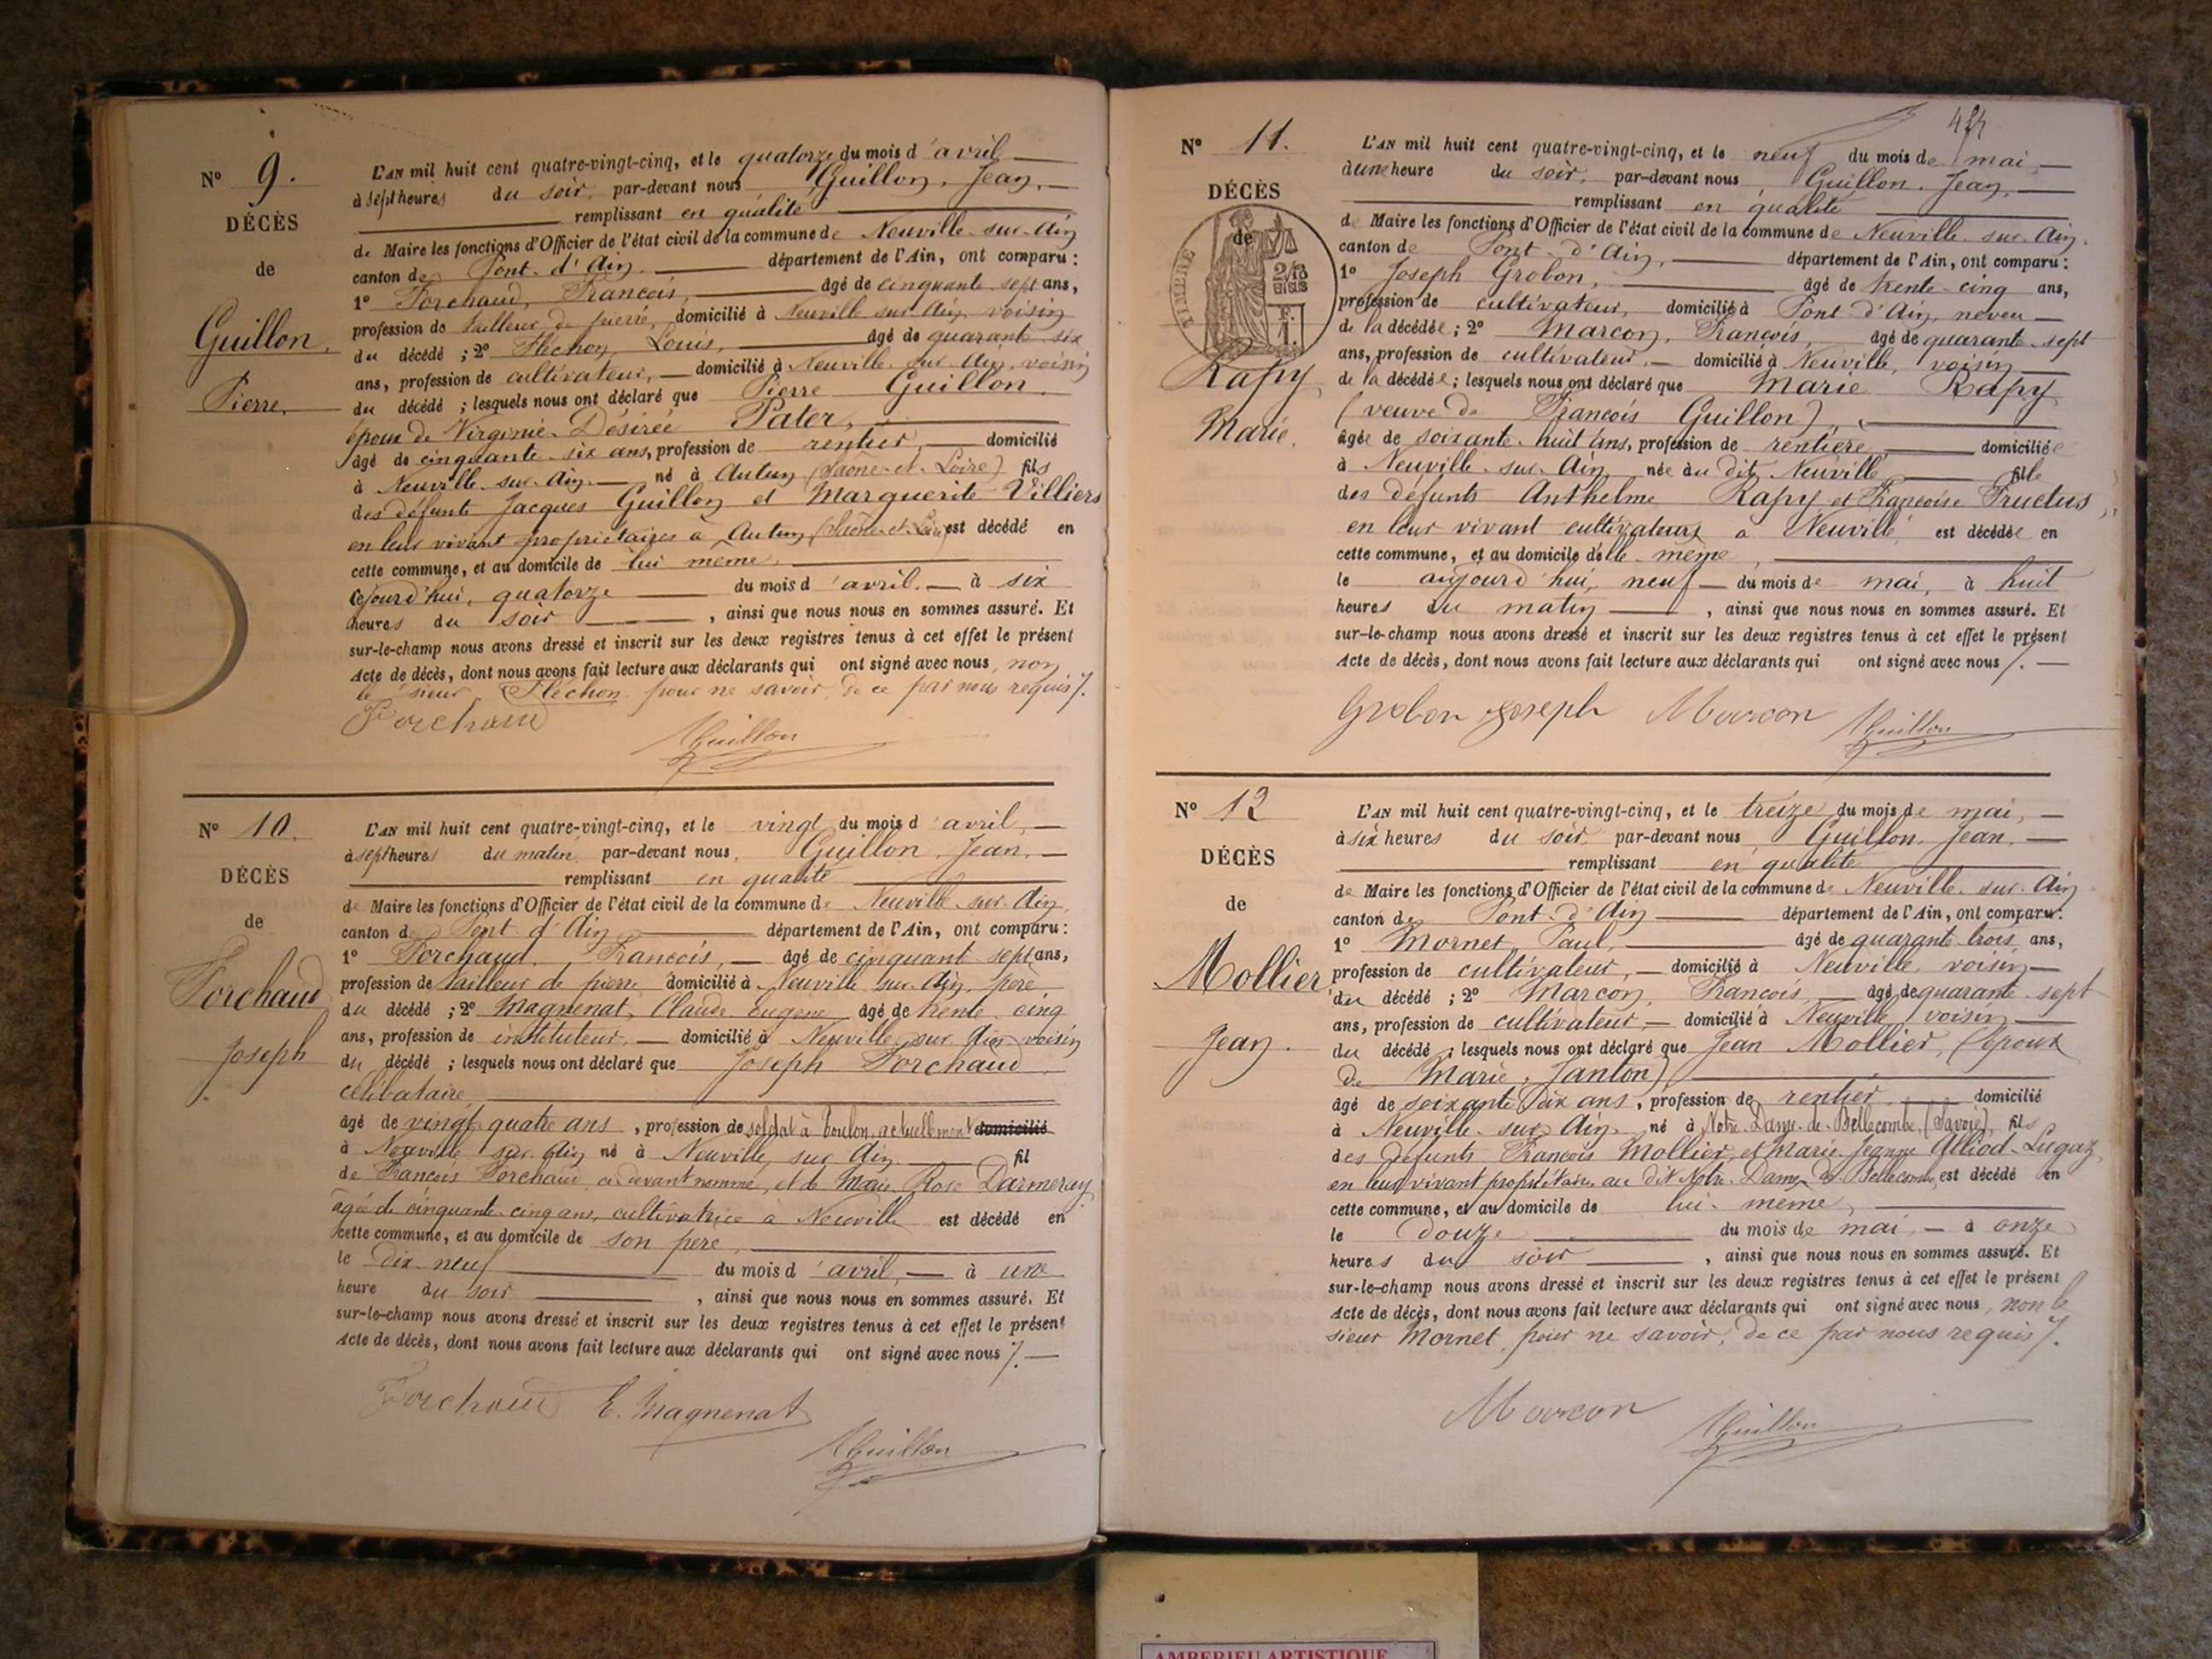 N° 9.
DÉCÈS
de
Guillon,
Pierre.
L'AN mil huit cent quatre-vingt-cinq, et le quatorze du mois d'avril
à sept heures du soir, par-devant nous, Guillon, Jean,
remplissant en qualité
de Maire les fonctions d'Officier de l'état civil de la commune de Neuville-sur-Ain
canton de Pont-d'Ain, département de l'Ain, ont comparu :
1° Forchaud, François, âgé de cinquante-sept ans,
profession de tailleur de pierre, domicilié à Neuville sur Ain, voisin
du décédé ; 2° Fléchon, Louis, âgé de quarante-six
ans, profession de cultivateur, domicilié à Neuville-sur-Ain, voisin
du décédé ; lesquels nous ont déclaré que Pierre Guillon,
époux de Virginie-Désirée Pater,
âgé de cinquante-six ans, profession de rentier, domicilié
à Neuville-sur-Ain né à Autun (Saône-et-Loire) fils
des défunts Jacques Guillon et Marguerite Villiers
en leur vivant propriétaires à Autun (Saône-et-Loire) est décédé en
cette commune, et au domicile de lui même,
cejourd'hui, quatorze du mois d'avril à six
heures du soir, ainsi que nous nous en sommes assuré. Et
sur-le-champ nous avons dressé et inscrit sur les deux registres tenus à cet effet le présent
Acte de décès, dont nous avons fait lecture aux déclarants qui ont signé avec nous, non
le sieur Fléchon pour ne savoir, de ce par nous requis /.
Forchaud
Guillon
N° 10.
DÉCÈS
de
Forchaud
Joseph
L'AN mil huit cent quatre-vingt-cinq, et le vingt du mois d'avril,
à sept heures du matin, par-devant nous, Guillon, Jean,
remplissant en qualité
de Maire les fonctions d'Officier de l'état civil de la commune de Neuville-sur-Ain,
canton de Pont d'Ain département de l'Ain, ont comparu :
1° Forchaud, François, âgé de cinquant-sept ans,
profession de tailleur de pierre domicilié à Neuville sur Ain, père
du décédé ; 2° Magnenat, Claude Eugène âgé de trente-cinq
ans, profession de instituteur, domicilié à Neuville-sur Ain voisin
du décédé ; lesquels nous ont déclaré que Joseph Forchaud,
célibataire,
âgé de vingt quatre ans, profession de soldat à Toulon, actuellement domicilié
à Neuville sur Ain né à Neuville sur Ain fil
de François Forchaud ci-devant nommé, et de Marie Rose Darmeray
âgée de cinquante-cinq ans, cultivatrice à Neuville est décédé en
cette commune, et au domicile de son père,
le dix-neuf du mois d'avril, à une
heure du soir, ainsi que nous nous en sommes assuré. Et
sur-le-champ nous avons dressé et inscrit sur les deux registres tenus à cet effet le présent
Acte de décès, dont nous avons fait lecture aux déclarants qui ont signé avec nous /.
Forchaud E. Magnenat
Guillon
N° 11.
DÉCÈS
de
TIMBRE
Rapy
Marie.
L'AN mil huit cent quatre-vingt-cinq, et le neuf du mois de mai,
à une heure du soir, par-devant nous, Guillon, Jean,
remplissant en qualité
de Maire les fonctions d'Officier de l'état civil de la commune de Neuville-sur-Ain.
canton de Pont-d'Ain, département de l'Ain, ont comparu :
1° Joseph Grobon, âgé de trente-cinq ans,
profession de cultivateur, domicilié à Pont d'Ain, neveu
de la décédée ; 2° Marcon, François, âgé de quarante-sept
ans, profession de cultivateur, domicilié à Neuville, voisin
de la décédée ; lesquels nous ont déclaré que Marie Rapy
(veuve de François Guillon),
âgée de soixante-huit ans, profession de rentière, domiciliée
à Neuville-sur-Ain née au dit Neuville fille
des défunts Anthelme Rapy et Françoise Fructus,
en leur vivant cultivateurs à Neuville est décédée en
cette commune, et au domicile d'elle-même,
le aujourd'hui, neuf du mois de mai, à huit
heures du matin, ainsi que nous nous en sommes assuré. Et
sur-le-champ nous avons dressé et inscrit sur les deux registres tenus à cet effet le présent
Acte de décès, dont nous avons fait lecture aux déclarants qui ont signé avec nous /.
Grobon joseph Marcon Guillon
N° 12
DÉCÈS
de
Mollier
Jean.
L'AN mil huit cent quatre-vingt-cinq, et le treize du mois de mai,
à six heures du soir, par-devant nous, Guillon, Jean,
remplissant en qualité
de Maire les fonctions d'Officier de l'état civil de la commune de Neuville-sur-Ain
canton de Pont-d'Ain département de l'Ain, ont comparu :
1° Mornet, Paul, âgé de quarante-trois ans,
profession de cultivateur, domicilié à Neuville, voisin
du décédé ; 2° Marcon, François, âgé de quarante-sept
ans, profession de cultivateur, domicilié à Neuville, voisin
du décédé ; lesquels nous ont déclaré que Jean Mollier, (époux
de Marie Janton)
âgé de soixante dix ans, profession de rentier, domicilié
à Neuville-sur Ain, né à Notre-Dame-de-Bellecombe, (Savoie), fils
des défunts François Mollier, et Marie-Jeanne Alliod-Lugaz,
en leur vivant propriétaires au dit Notre-Dame de Bellecombe, est décédé en
cette commune, et au domicile de lui-même,
le douze du mois de mai, à onze
heures du soir, ainsi que nous nous en sommes assuré. Et
sur-le-champ nous avons dressé et inscrit sur les deux registres tenus à cet effet le présent
Acte de décès, dont nous avons fait lecture aux déclarants qui ont signé avec nous, non le
sieur Mornet, pour ne savoir, de ce par nous requis /.
Marcon Guillon
AMBERIEU ARTISTIQUE